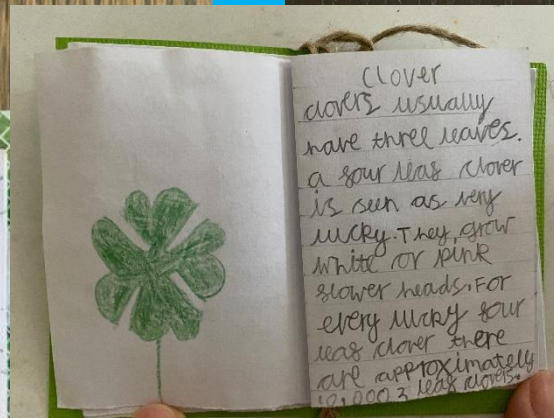 Clover
clovers usually
have three leaves.
a four leaf clover
is seen as very
lucky. They grow
white or pink
flower heads. For
every lucky four
leaf clover there
are approximately
10,000 3 leaf clovers.